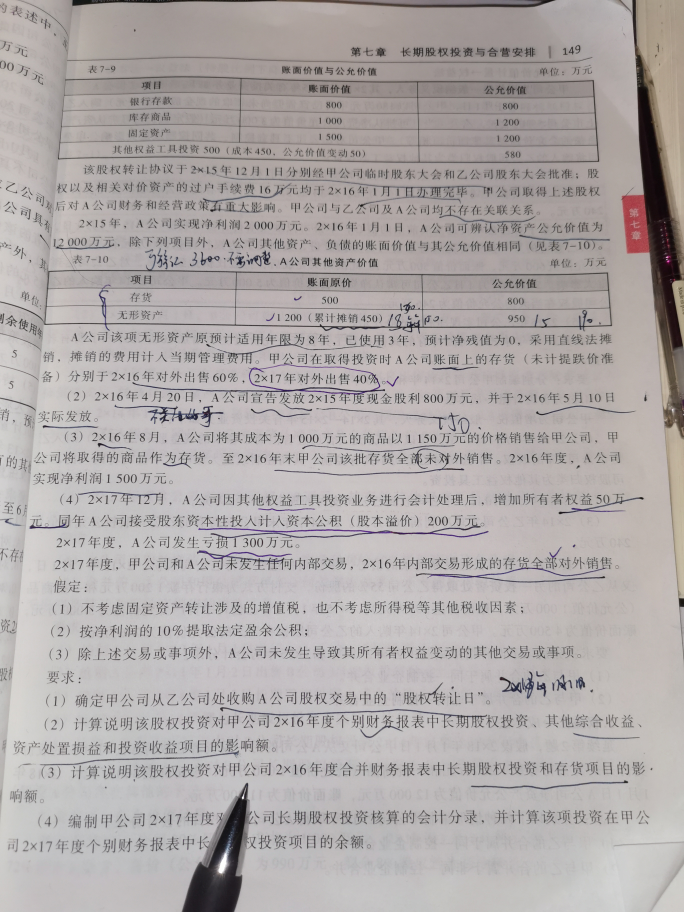 的表述中,
万元
00万元
第七章 长期股权投资与合营安排 149
表7-9 账面价值与公允价值 单位：万元
项目 账面价值 公允价值
银行存款 800 800
库存商品 1 000 1 200
固定资产 1 500 1 200
其他权益工具投资 500（成本450，公允价值变动50） 580
该股权转让协议于2×15年12月1日分别经甲公司临时股东大会和乙公司股东大会批准；股
权以及相关对价资产的过户手续费16万元均于2×16年1月1日办理完毕。甲公司取得上述股权
后对A公司财务和经营政策有重大影响。甲公司与乙公司及A公司均不存在关联关系。
2×15年，A公司实现净利润2 000万元。2×16年1月1日，A公司可辨认净资产公允价值为
12 000万元，除下列项目外，A公司其他资产、负债的账面价值与其公允价值相同（见表7-10）。
表7-10 3600 A公司其他资产价值 单位：万元
项目 账面原价 公允价值
存货 500 800
无形资产 1 200（累计摊销450） 950 15
A公司该项无形资产原预计适用年限为8年，已使用3年，预计净残值为0，采用直线法摊
销，摊销的费用计入当期管理费用。甲公司在取得投资时A公司账面上的存货（未计提跌价准
备）分别于2×16年对外出售60%，2×17年对外出售40%。
（2）2×16年4月20日，A公司宣告发放2×15年度现金股利800万元，并于2×16年5月10日
实际发放。
150
（3）2×16年8月，A公司将其成本为1 000万元的商品以1 150万元的价格销售给甲公司，甲
公司将取得的商品作为存货。至2×16年末甲公司该批存货全部未对外销售。2×16年度，A公司
实现净利润1 500万元。
（4）2×17年12月，A公司因其他权益工具投资业务进行会计处理后，增加所有者权益50万
元。同年A公司接受股东资本性投入计入资本公积（股本溢价）200万元。
2×17年度，A公司发生亏损1 300万元。
2×17年度，甲公司和A公司未发生任何内部交易，2×16年内部交易形成的存货全部对外销售。
假定：
（1）不考虑固定资产转让涉及的增值税，也不考虑所得税等其他税收因素；
（2）按净利润的10%提取法定盈余公积；
（3）除上述交易或事项外，A公司未发生导致其所有者权益变动的其他交易或事项。
要求：
（1）确定甲公司从乙公司处收购A公司股权交易中的“股权转让日”。
（2）计算说明该股权投资对甲公司2×16年度个别财务报表中长期股权投资、其他综合收益、
资产处置损益和投资收益项目的影响额。
（3）计算说明该股权投资对甲公司2×16年度合并财务报表中长期股权投资和存货项目的影
响额。
（4）编制甲公司2×17年度对 公司长期股权投资核算的会计分录，并计算该项投资在甲公
司2×17年度个别财务报表中长 权投资项目的余额。
第七章